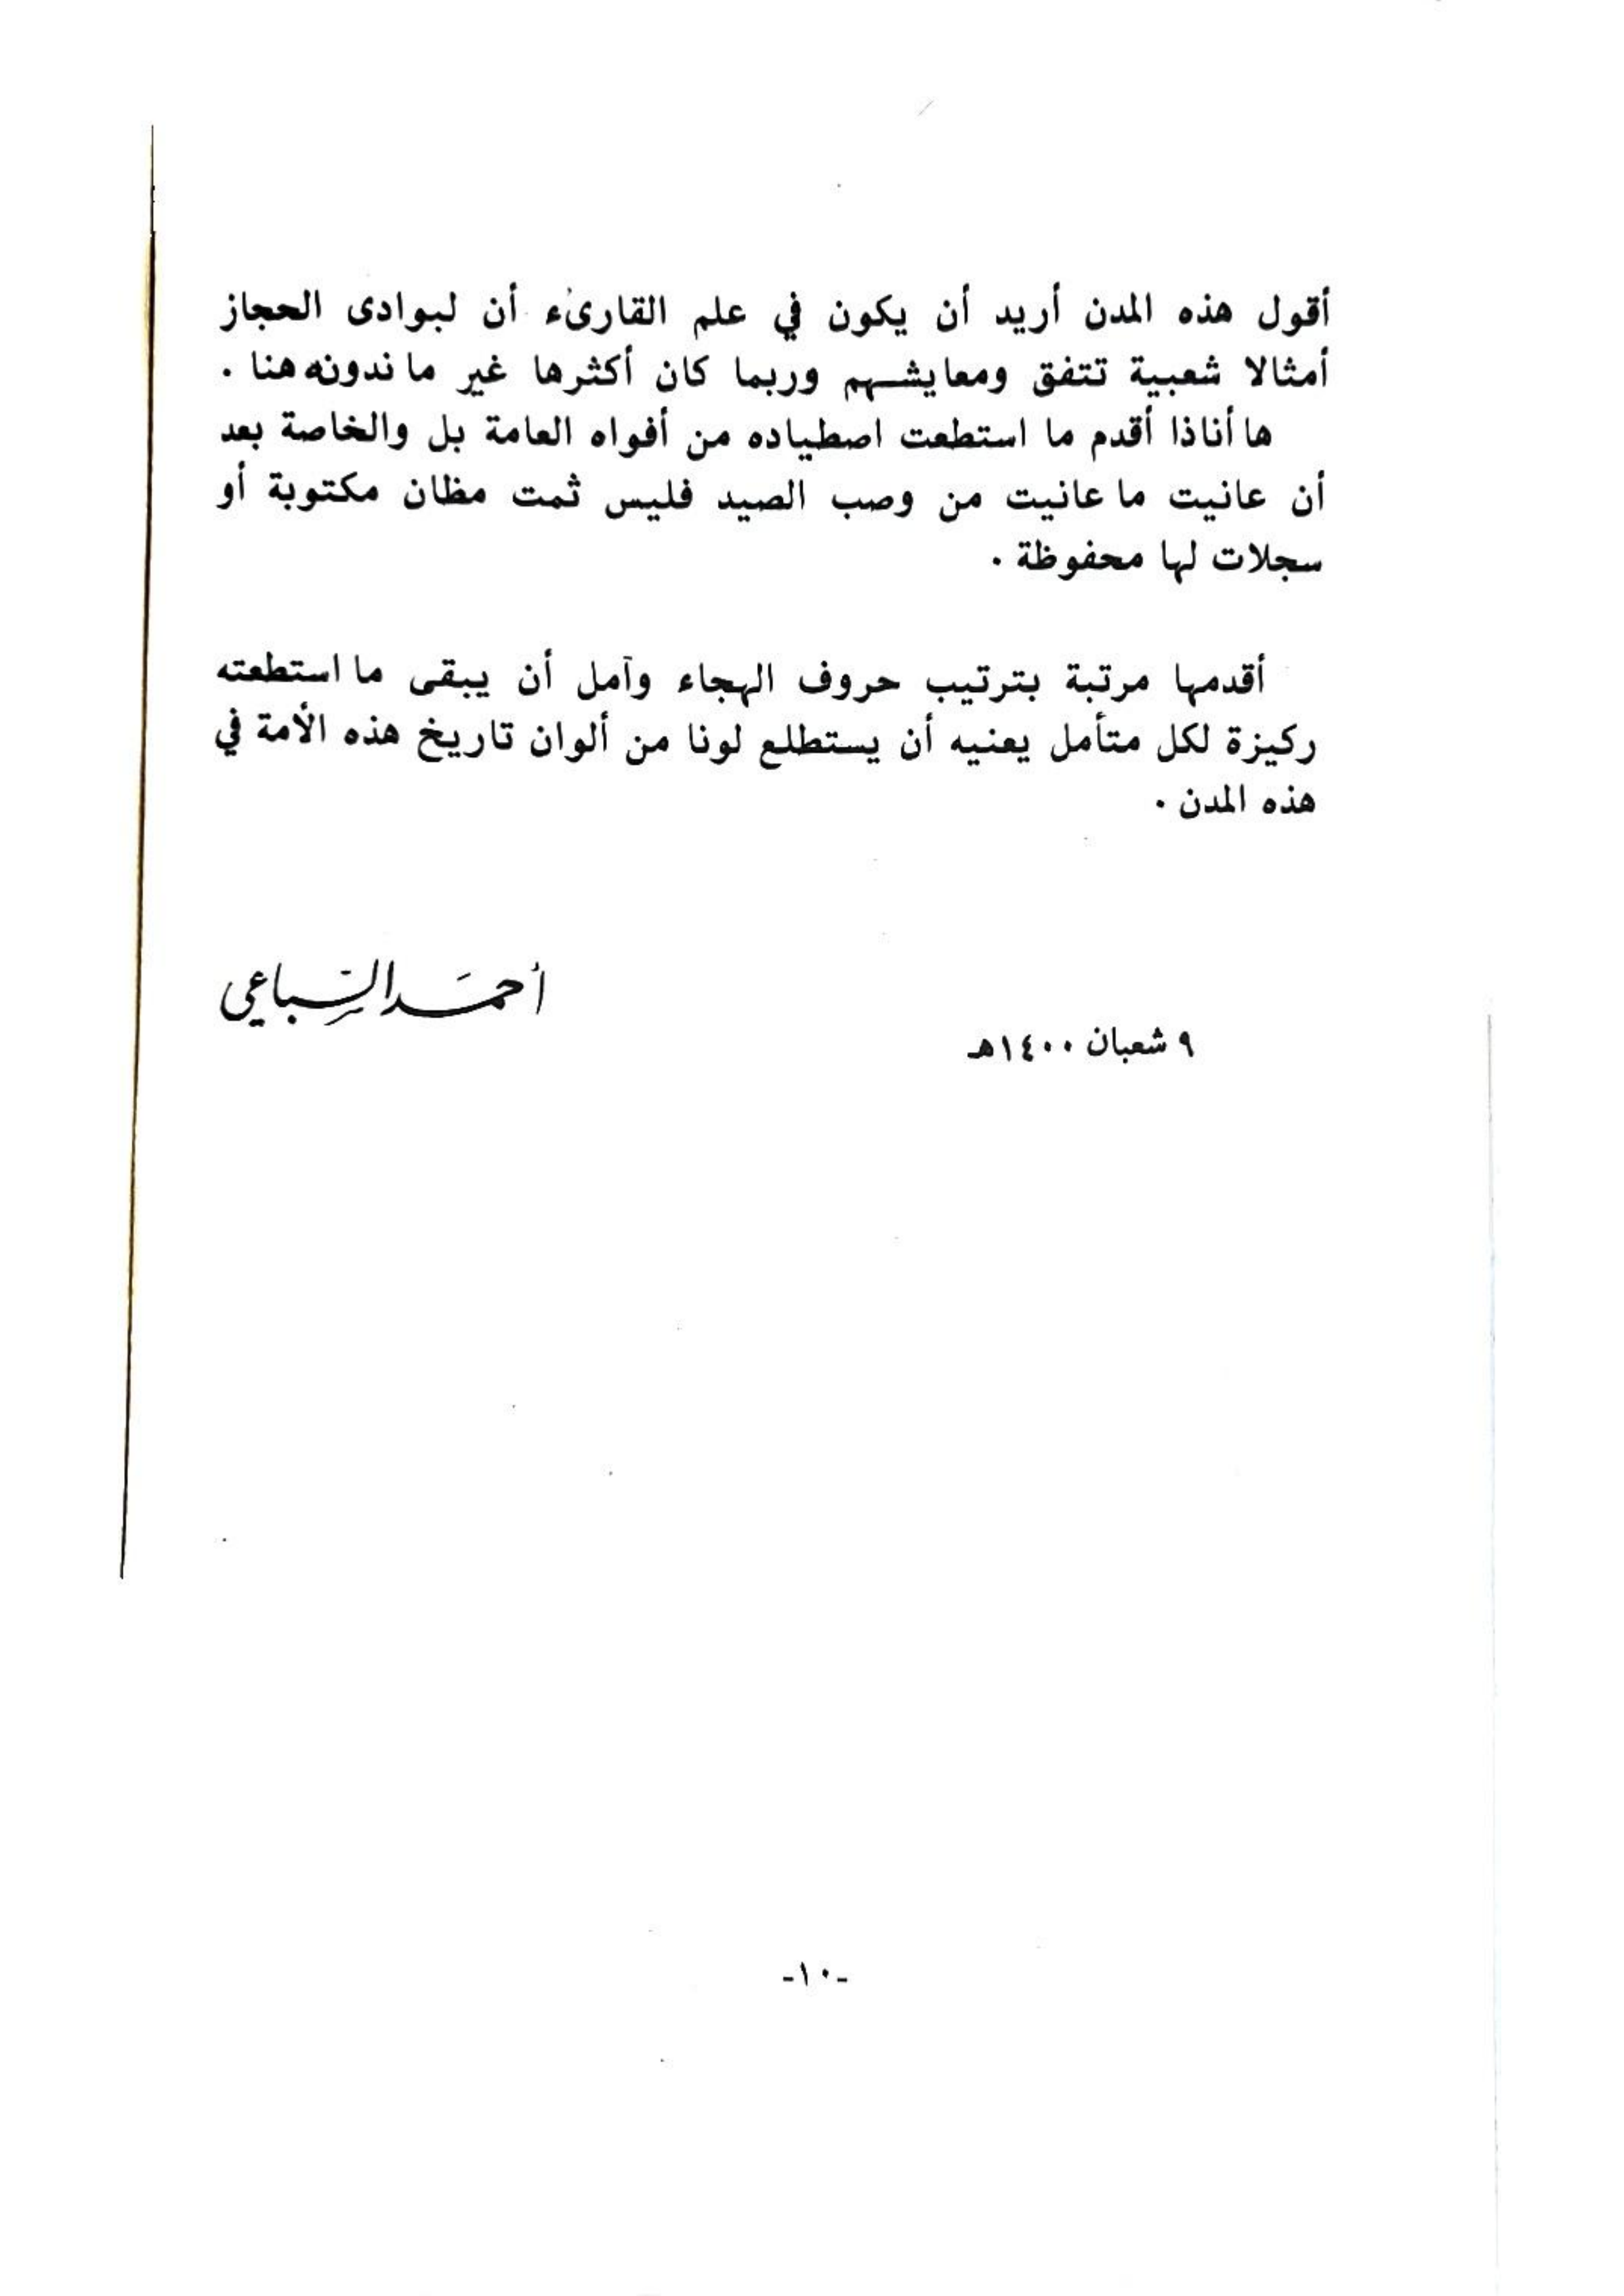 أقول هذه المدن أريد أن يكون في علم القارىء أن لبوادى الحجاز
أمثالا شعبية تتفق ومعايشهم وربما كان أكثرها غير ما ندونه هنا .
ها أناذا أقدم ما استطعت اصطياده من أفواه العامة بل والخاصة بعد
أن عانيت ما عانيت من وصب الصيد فليس ثمت مظان مكتوبة أو
سجلات لها محفوظة .
أقدمها مرتبة بترتيب حروف الهجاء وآمل أن يبقى ما استطعته
ركيزة لكل متأمل يعنيه أن يستطلع لونا من ألوان تاريخ هذه الأمة في
هذه المدن .
أحمَد السّباعي
٩ شعبان ١٤٠٠هـ
-١٠-